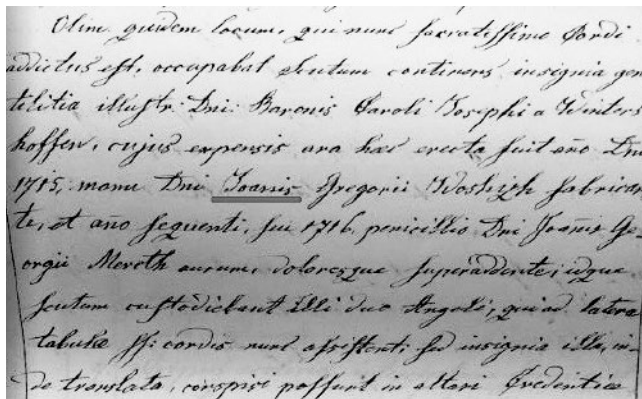 Olim quidem locum, qui nunc sacratissimo Cordi
addictus est, occupabat scutum continens insignia gen
tilitia illustr. Dni. Baronis Caroli Josephi a Winters
hoffen, cujus expensis ara haec erecta fuit año Dni
1715, manu Dni Joanis Gregorii Woshizh fabrican
te, et año sequenti, sui 1716, penicillio Dni Joañis Ge-
orgii Mereth aurum, doloresque superaddente; idque
scutum custodiebant illi duo Angeli, qui ad latera
tabulae SS: cordis nunc assistent; sed insignia illa, in-
de translata, conspici possunt in altari Credentiae